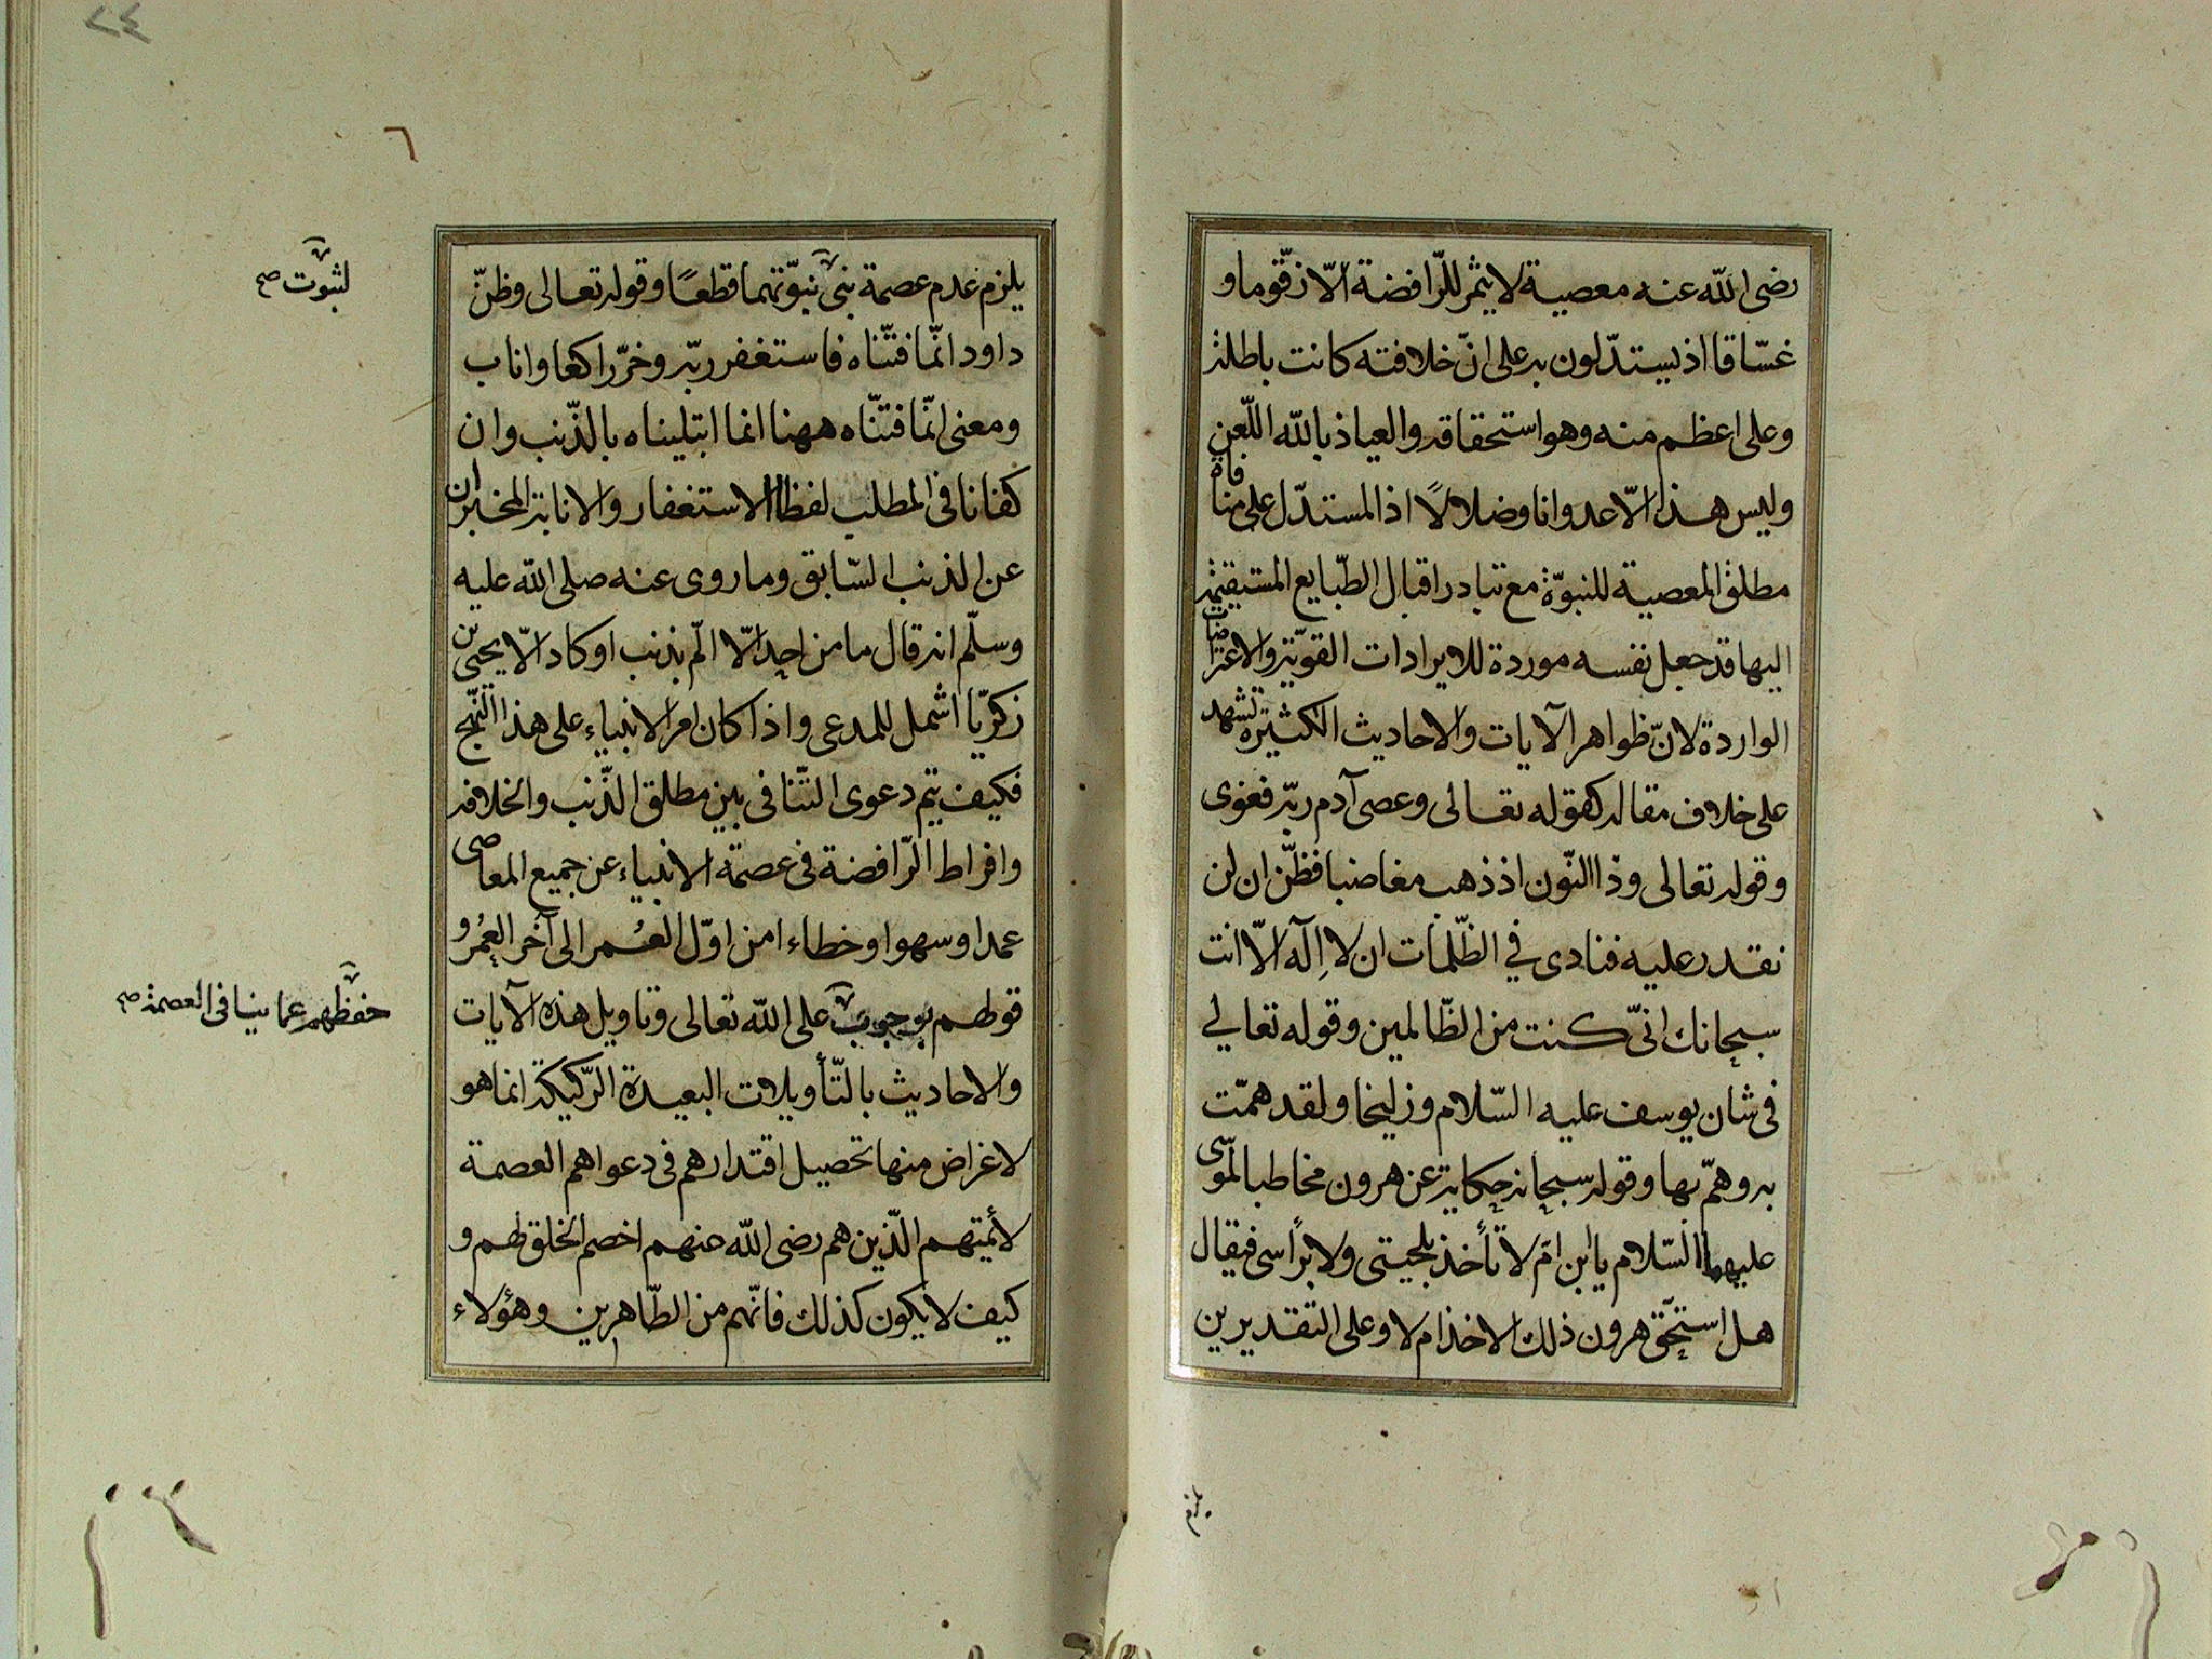 رضى الله عنه معصية لا يثمر للرّافضة الّا زقّوما و
غسّاقا اذ يستدّلون به على انّ خلافته كانت باطلة
وعلى اعظم منه وهو استحقاقه والعياذ بالله اللّعن
وليس هذا الّا عدوانا وضلالًا اذ المستدّل على منافاة
مطلق المعصية للنبوّة مع تبادر اقبال الطّبايع المستقيمة
اليها قد جعل نفسه موردة للايرادات القويّة والاعتراضات
الواردة لانّ ظواهر الآيات والاحاديث الكثيرة تشهد
على خلاف مقاله كقوله تعالى وعصى آدم ربّه فغوى
وقوله تعالى وذا النّون اذ ذهب مغاضبا فظنّ ان لن
نقدر عليه فنادى في الظّلمات ان لا اِلٓه الّا انت
سبحانك انّى كنت من الظّالمين وقوله تعالي
فى شان يوسف عليه السّلام وزليخا ولقد همّت
به وهمّ بها وقوله سبحانه حكاية عن هرون مخاطبا لموسى
عليهما السّلام يا ابن امّ لا تأخذ بلحيتى ولا برأسى فيقال
هل استحقّ هرون ذلك الاخذ ام لا وعلى التقديرين
يلزم
٢٤
٦
يلزم عدم عصمة نبى نبوّتهما قطعًا وقوله تعالى وظنّ
لثبوت صح
داود انّما فتنّاه فاستغفر ربّه وخرّ راكعا واناب
ومعنى انّما فتنّاه ههنا انما ابتليناه بالذّنب وان
كفانا فى المطلب لفظا الاستغفار والانابة المخبران
عن الذنب السّابق وما روى عنه صلى الله عليه
وسلّم انه قال ما من احد الّا الّم بذنب او كاد الّا يحيى بن
زكريّا اشمل للمدعى واذا كان امر الانبياء على هذا النّهج
فكيف يتم دعوى التّنافى بين مطلق الذّنب والخلافة
وافراط الرّافضة فى عصمة الانبياء عن جميع المعاصى
عمدا وسهوا وخطاء من اوّل العُمر الى آخر العمُر و
قولهم بوجوب على الله تعالى وتاويل هذه الآيات
حفظهم عما ينافى العصمة صح
والاحاديث بالتّأويلات البعيدة الرّكيكة انما هو
لاغراض منها تحصيل اقتدارهم فى دعواهم العصمة
لأئمتهم الّذين هم رضى الله عنهم اخصم الخلق لهم و
كيف لا يكون كذلك فانّهم من الطّاهرين وهؤلاء